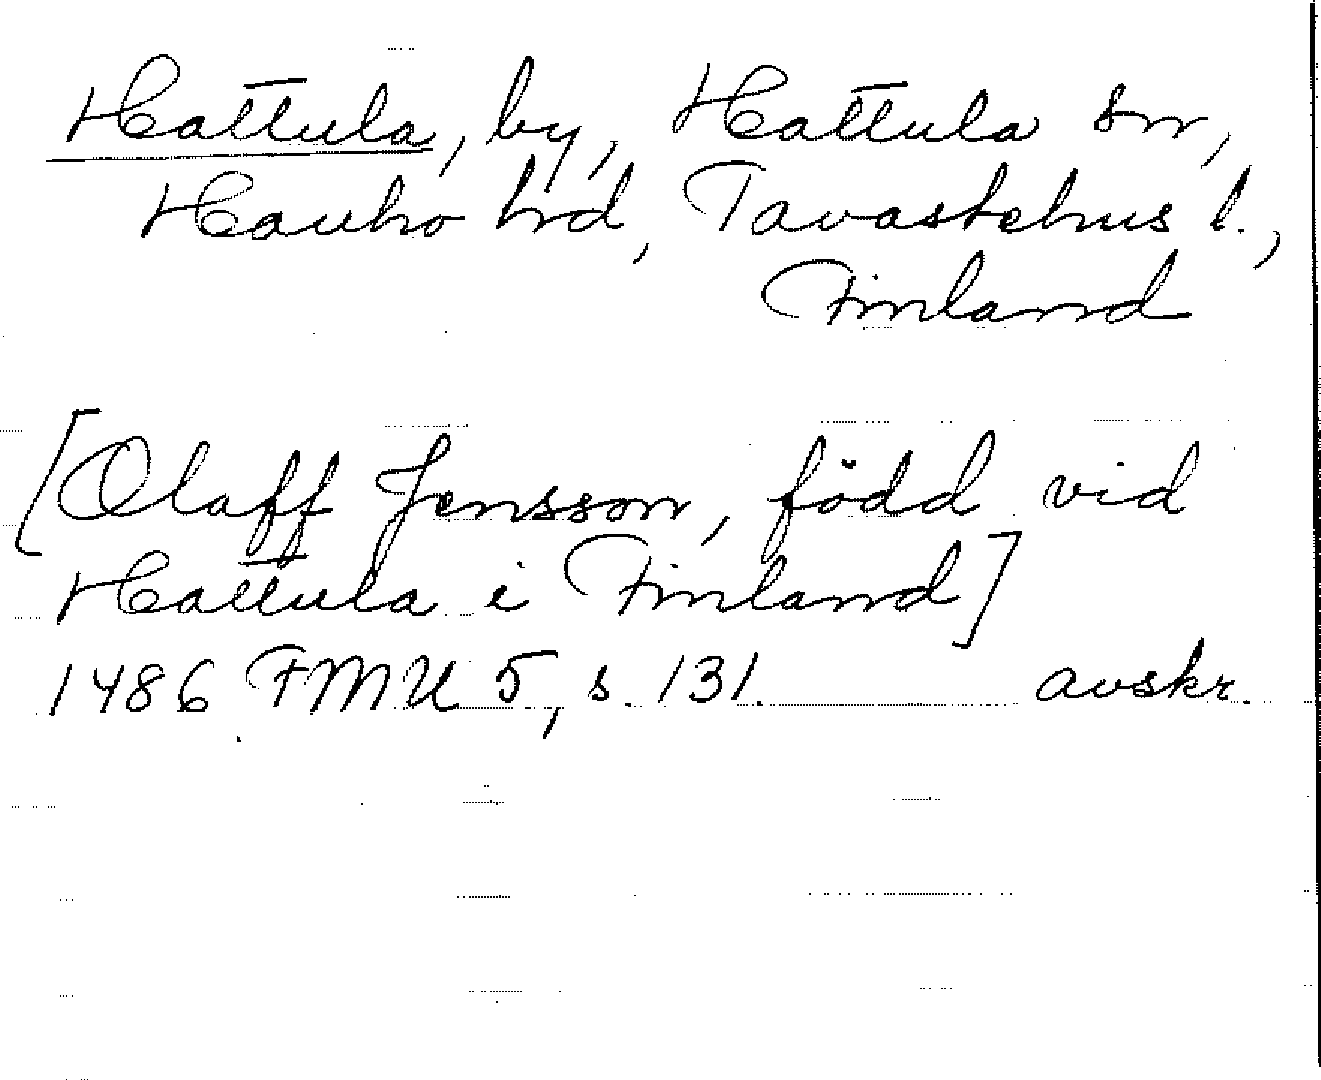 Hattula, by, Hattula sn,
Hauho hrd, Tavastehus l.,
Finland
[Olaff Jensson, född vid
Hattula i Finland]
1486 FMU 5, s. 131. avskr.